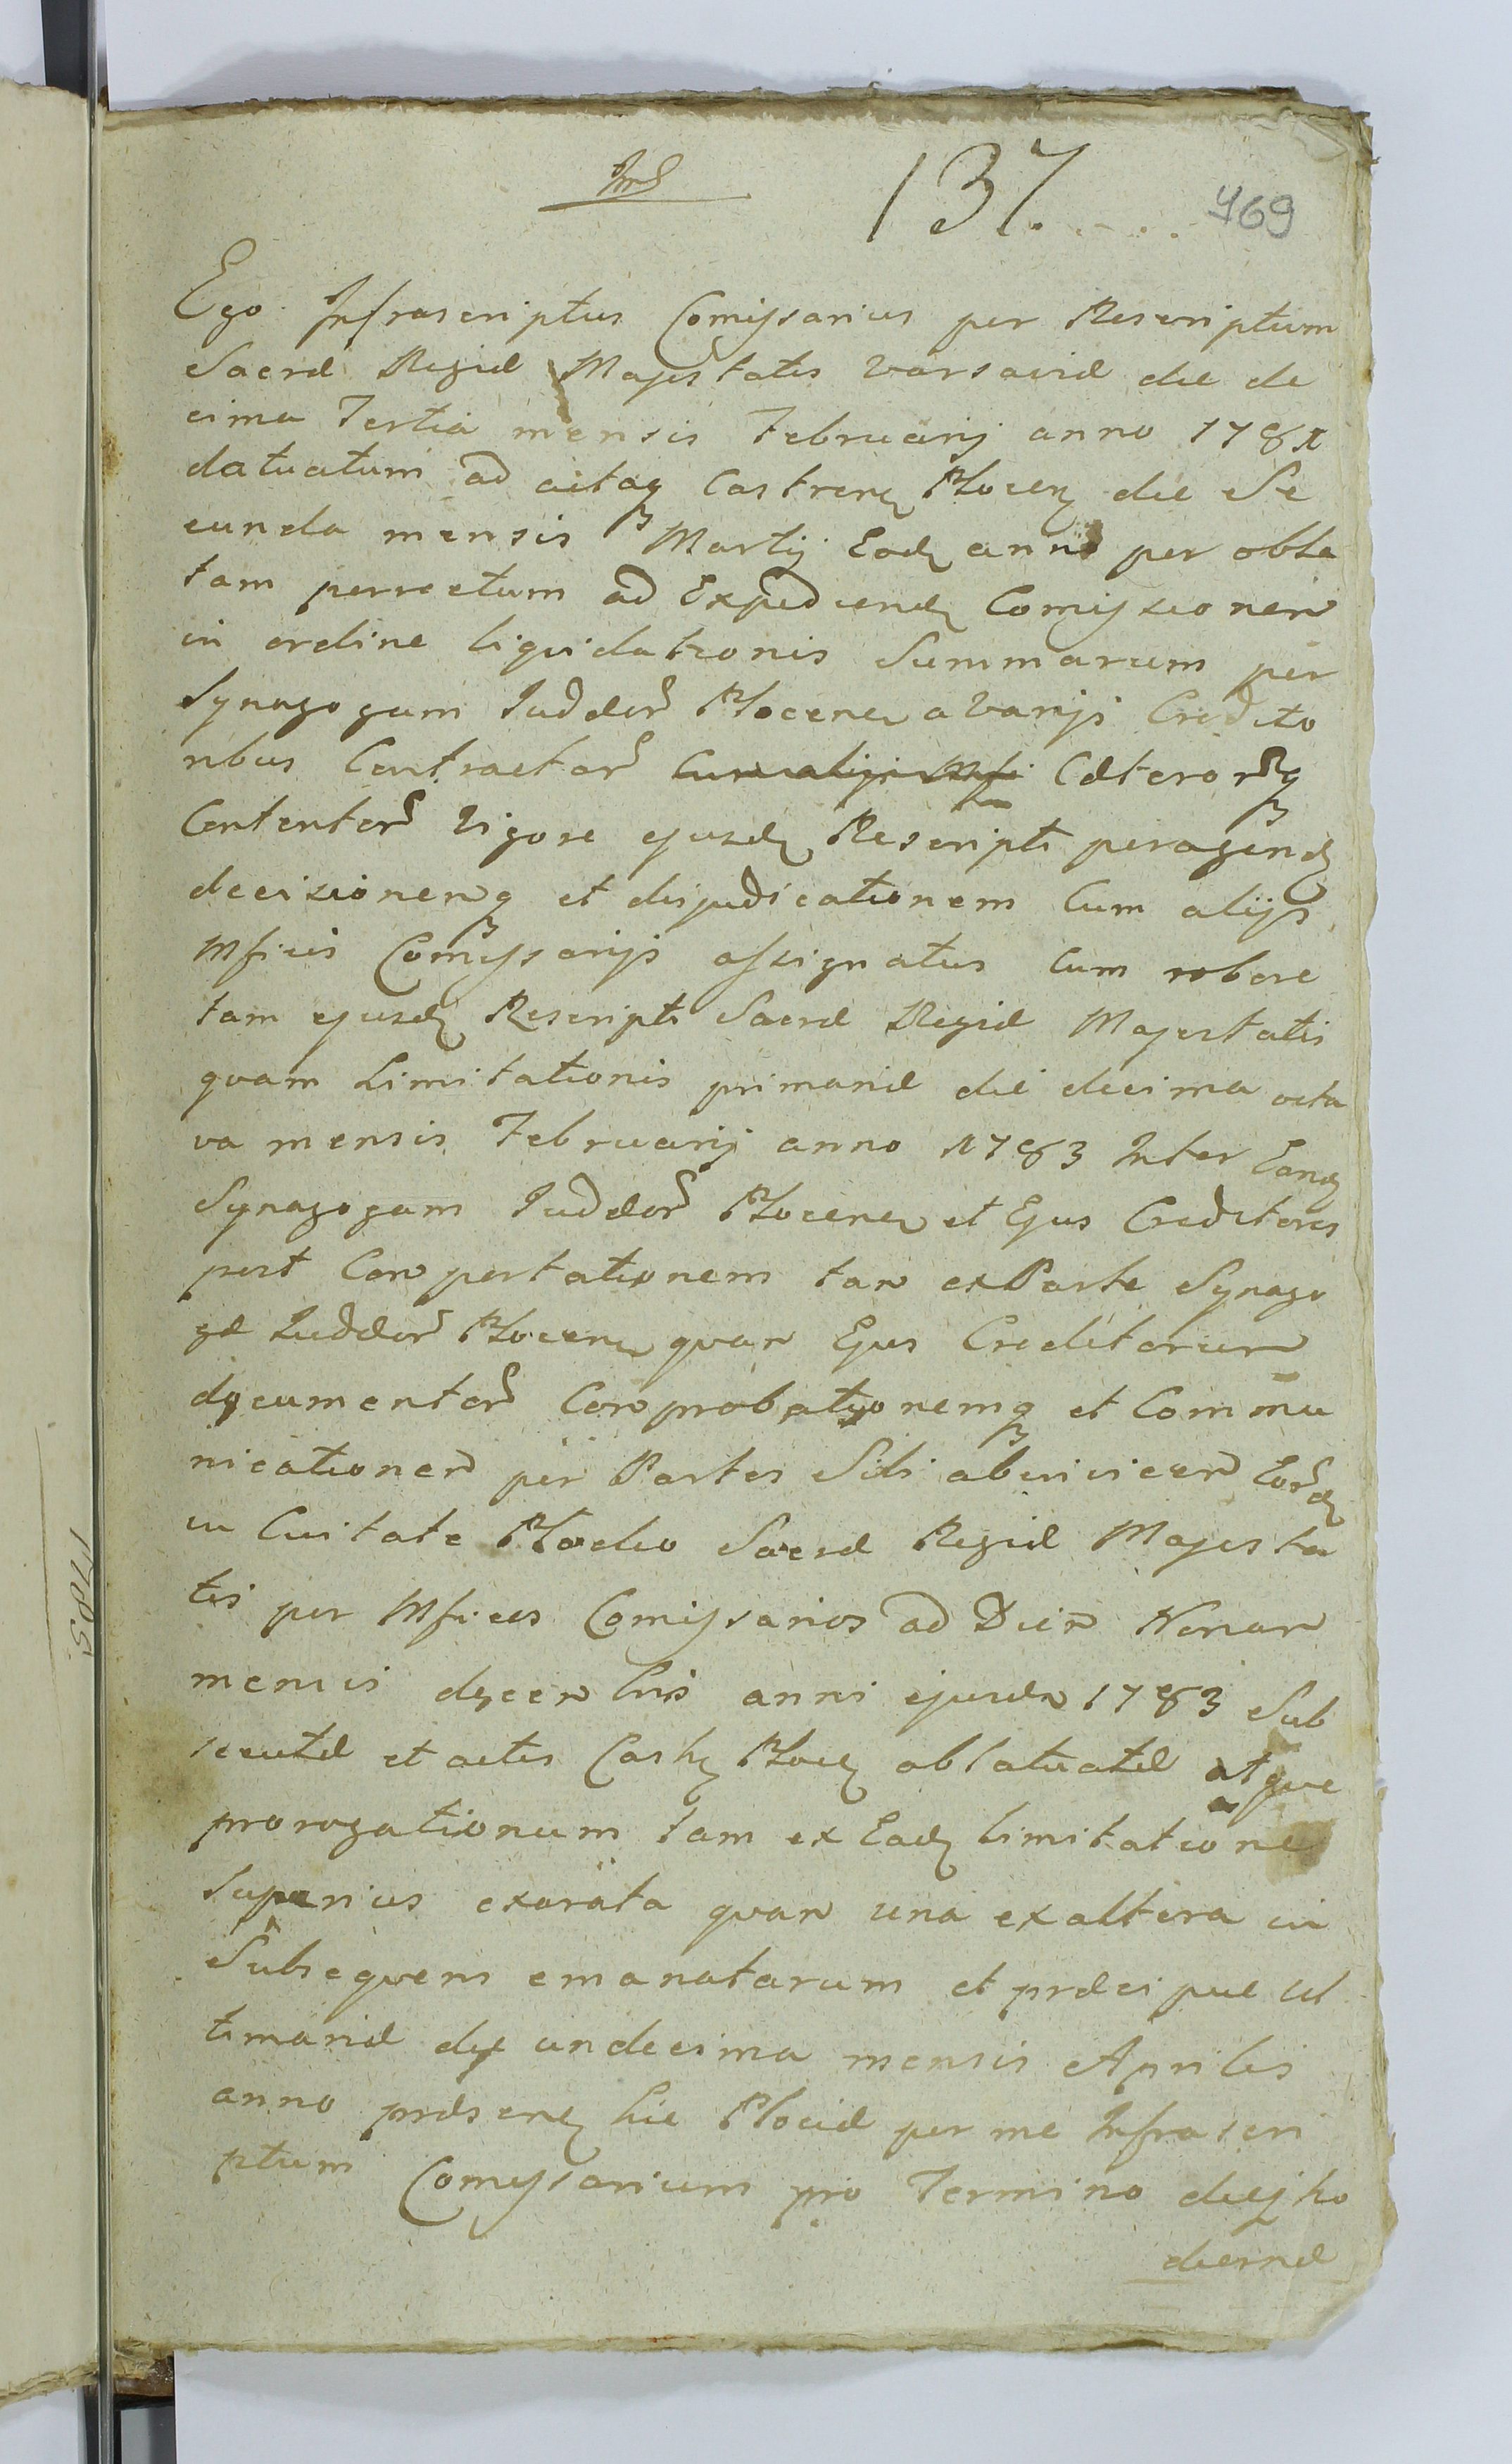 137. 469
Ego Infrascriptus Comissarius per Rescriptum
Sacræ Regiæ Majestatis Varsaviæ die de
cima Tertia mensis Februarij anno 178
datuatum ad actaq Castren Plocen die Se
cunda mensis Martij Eod anno per obla
tam perrectum ad Expediend Comissionem
in ordine liquidationis Summarum per
Synagogam Judæor Plocen a Varijs Credito
ribus Contractar Cum alijs Mfi Cæterorq
Contentor Vigore ejusd Rescripti peragend
decisionemq et dijudicationem Cum alijs
Mficis Comissarijs assignatus Cum robore
tam ejusd Rescripti Sacræ Regiæ Majestatis
quam Limitationis primariæ die decima octa
va mensis Februarij anno 1783 Inter Eand
Synagogam Judæor Plocen et Ejus Creditores
post Comportationem tam ex Parte Synago
gæ Judæor Plocen quam Ejus Creditorum
documentor Comprobationemq et Commu
nicationem per Partes Sibi ab invicem Eord
in Civitate Plocko Sacræ Regiæ Majesta
tis per Mficos Comissarios ad Diem Nonam
mensis decembris anni ejusdem 1783 Sub
secutæ et actis Cast Plocen oblatuatæ atque
prorogationum tam ex Ead limitatione
Superius exarata quam una ex altera in
Subsequens emanatarum et præcipue Ul
timariæ die undecima mensis Aprilis
anno præsen hic Plociæ per me Infrascri
ptum Comissarium pro Termino diei ho
diernæ
1785